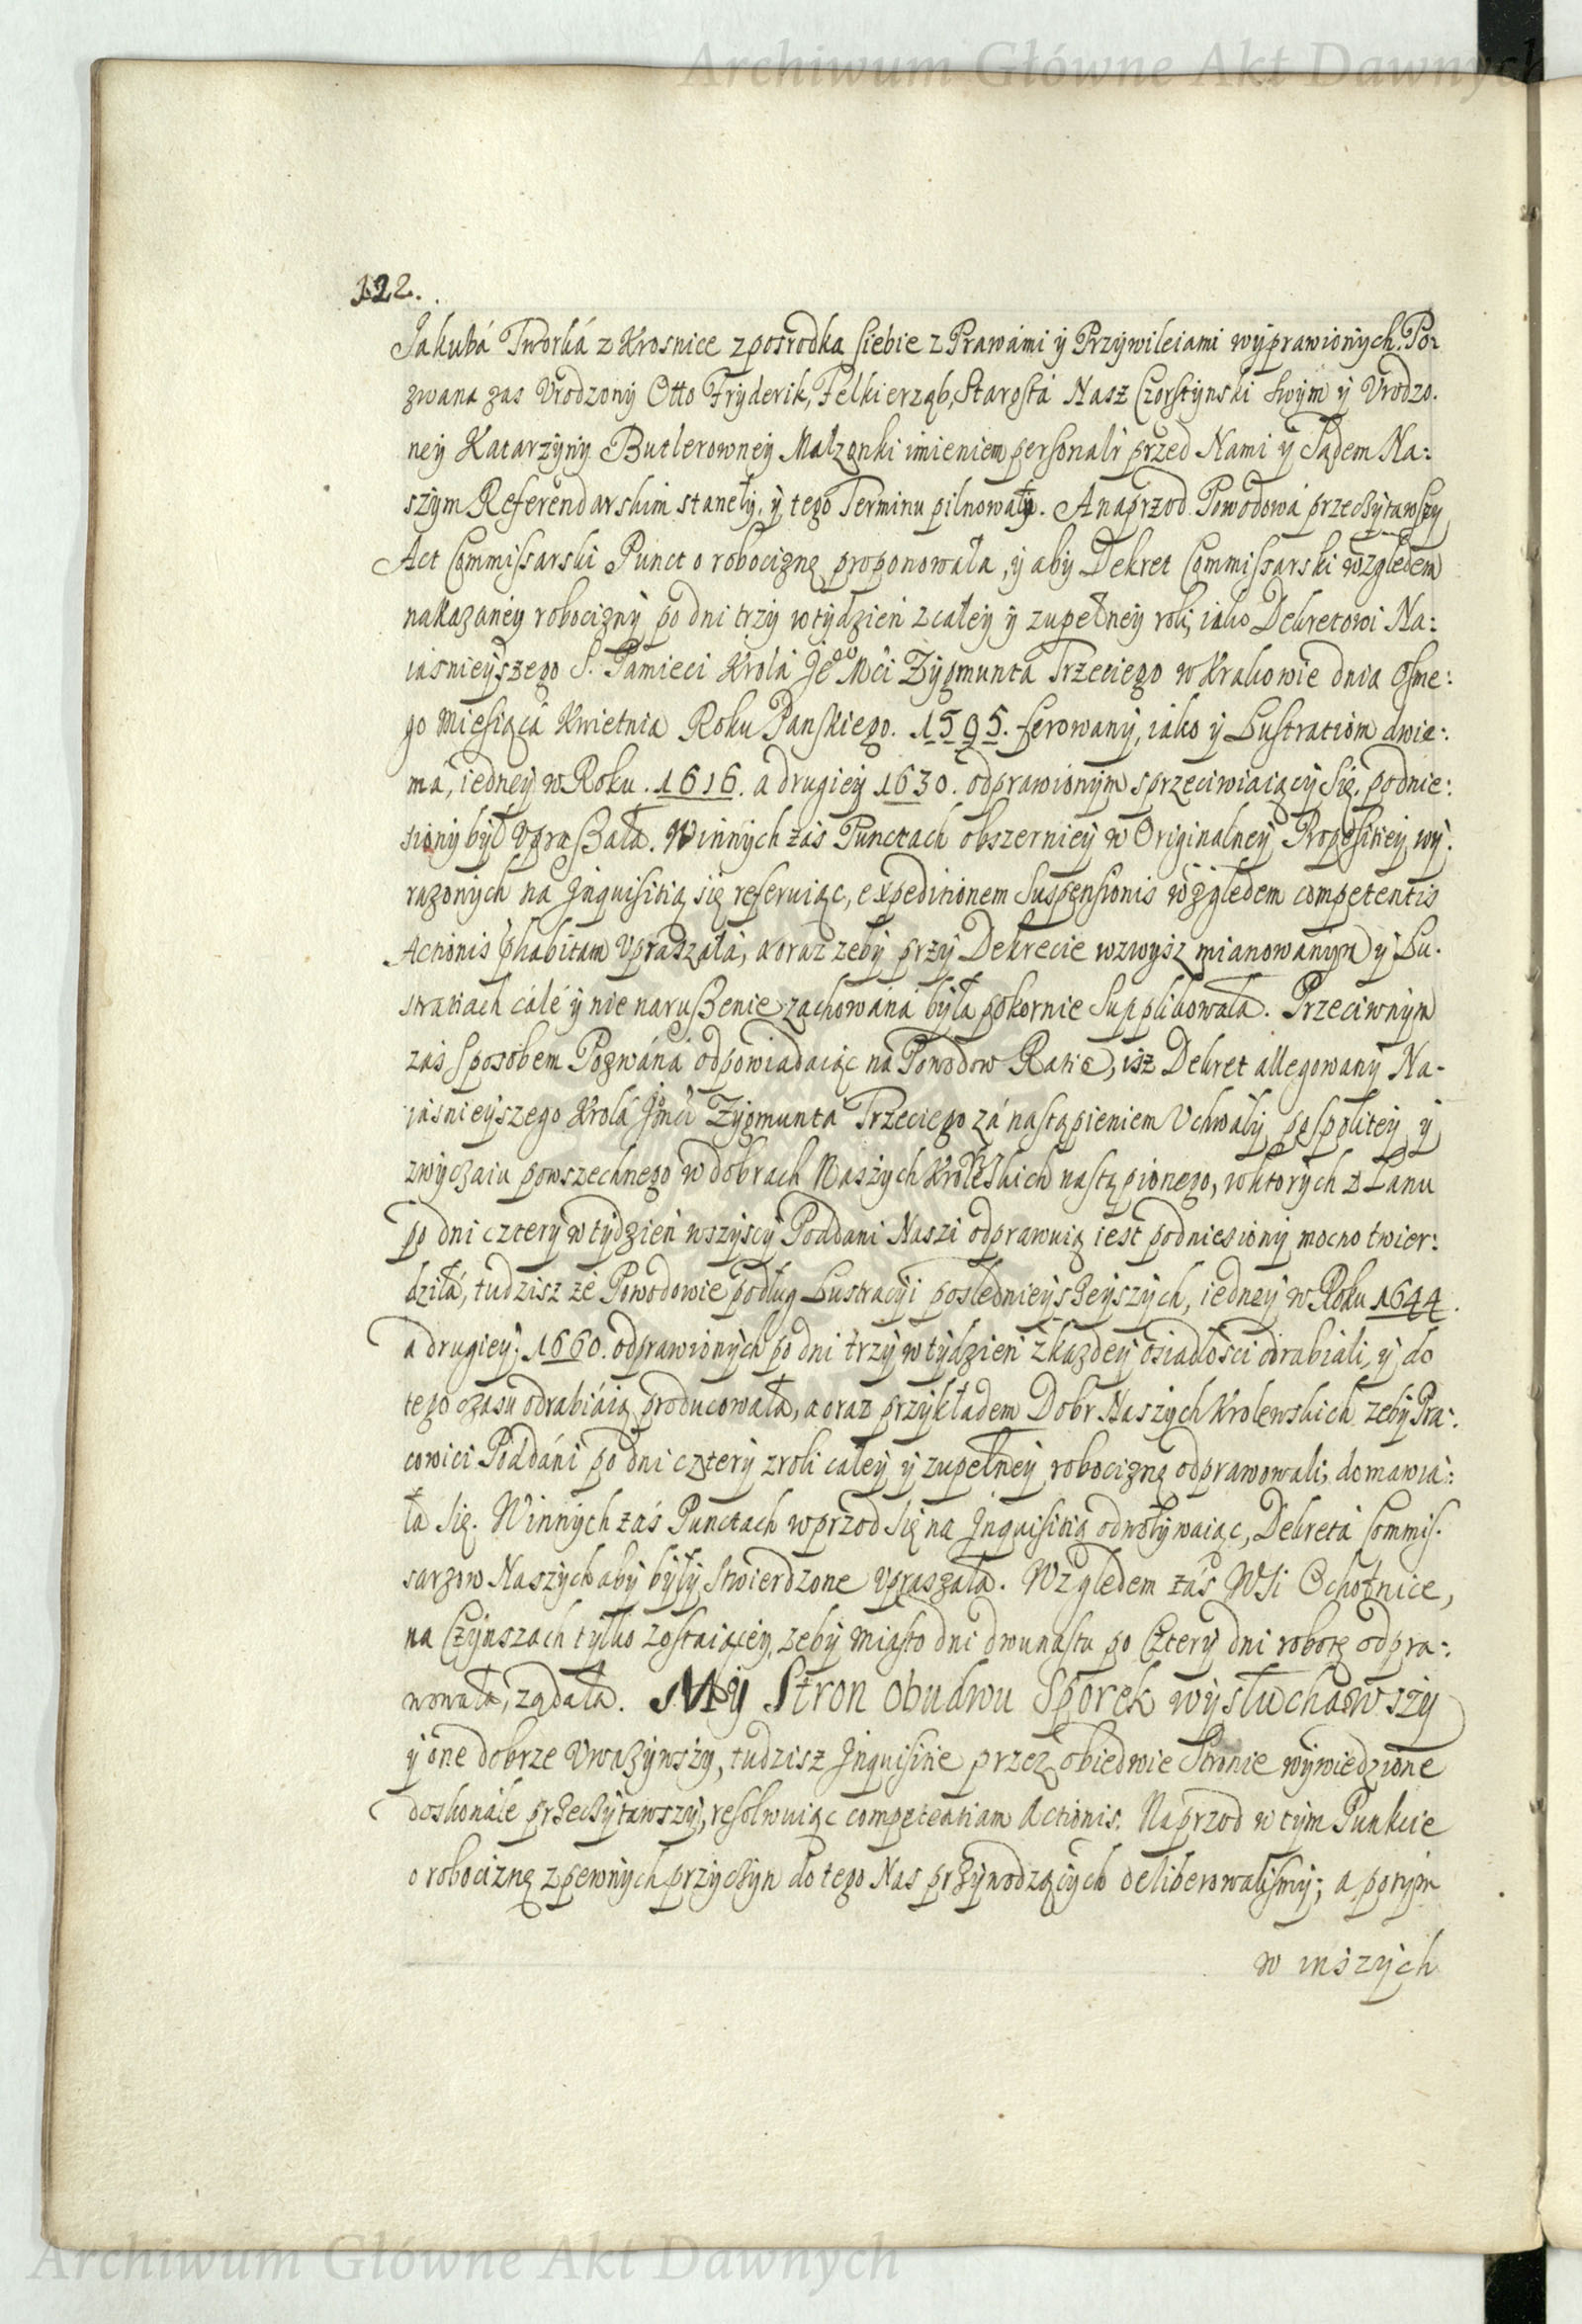 Archiwum Główne Akt Dawnych
122.
Jakubá Tworká z Krosnice zposrodka siebie z Prawámi ÿ Przÿwileiami wÿprawionÿch. Po:
zwana zas Vrodzonÿ Otto Frÿderik, Felkierząb, Starostá Nasz Czorstÿnski swÿm ÿ Vrodzo.
neÿ Katarzÿnÿ Butlerowneÿ Małzonki imieniem personalr przed Nami ÿ Sądem Na:
szÿm Referendarskim stanełÿ, ÿ tego Terminu pilnowałÿ. A naprzod Powodowá przeczÿtawszÿ
Act Commissarski Punct o robociznę proponowała, ÿ abÿ Dekret Commissarski względem
nakazáneÿ robociznÿ po dni trzÿ w tÿdzień z całeÿ ÿ zupełneÿ roli, iako Dekretowi Na:
iasnieÿszego S. Pámieci Krolá Je° Mći Zÿgmunta Trzeciego w Krakowie dnia osme:
go Miesiąca Kwietnia Roku Panskiego. 1595. ferowanÿ, iako ÿ Lustratiom dwie:
má, iedneÿ w Roku. 1616. a drugieÿ 1630. odprawionÿm sprzeciwiaiącÿ się, podnie:
sionÿ bÿł vpraszała. W innÿch zás Punctach obszernieÿ w Originalneÿ Propositieÿ wÿ.
razonÿch na Inquisitią się referuiąc, expeditionem suspensionis względem competentis
Actionis phabitam vpraszałá, a oraz zebÿ przÿ Dekrecie wzwÿsz mianowanÿm ÿ Lu.
stratiach cále ÿ nie naruszenie zachowáná bÿła pokornie supplikowała. Przeciwnÿm
zás sposobem Pozwáná odpowiadaiąc ná Powodow Ratie, isz Dekret állegowanÿ Na-
iásnieÿszego Krolá Jmći Zÿgmunta Trzeciego zá nastąpieniem Vchwałÿ pospoliteÿ ÿ
zwÿczaiu powszechnego w dobrach Naszÿch Krolewskich nastąpionego, w ktorÿch z Łanu
po dni czterÿ w tÿdzień wszÿscÿ Poddani Naszi odprawuią iest podniesionÿ mocno twier:
dziłá, tudzisz ze Powodowie podług Lustracÿi poslednieÿszeÿszÿch, iedneÿ w Roku 1644.
a drugieÿ; 1660. odprawionÿch po dni trzÿ w tÿdzień z kazdeÿ osiadłosci odrabiáli, ÿ do
tego czasu odrabiáią producowała, a oraz przÿkładem Dobr Naszÿch Krolewskich zebÿ Pra:
cowici Poddáni po dni czterÿ z roli całeÿ ÿ zupełneÿ robociznę odprawowali, domawia:
ła się. W innÿch zás Punctach wprzod się na Inquisitią odwołÿwaiąc, Dekretá Commis.
sarzow Naszÿch abÿ bÿłÿ stwierdzone vpraszała. Względem zás Wsi Ochotnice,
na Czÿnszach tÿlko zostaiąceÿ, zebÿ miasto dni dwunastu po czterÿ dni robotę odpra:
wowała, ządała. MY Stron obudwu Sporek wÿsłuchawszÿ
ÿ one dobrze vwazÿwszÿ, tudzisz Inquisitie przez obiedwie Stronie wÿwiedzione
doskonále przeczÿtawszÿ, resolwuiąc competentiam Actionis. Naprzod w tÿm Punkcie
o robociznę z pewnÿch przÿczÿn do tego Nas przÿwodzącÿch deliberowalismÿ; a potÿm
w inszÿch
Archiwum Główne Akt Dawnych